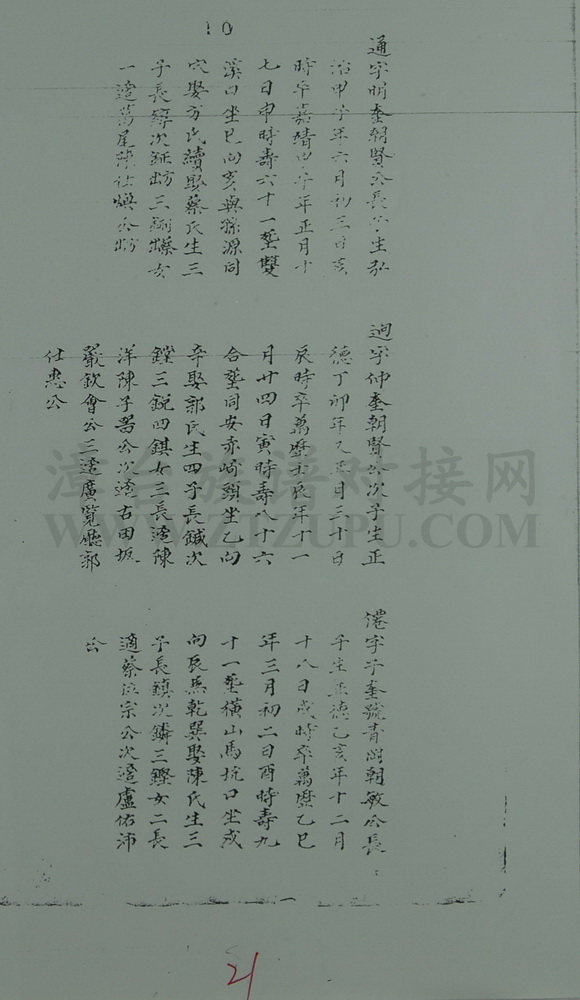 10
通字明奎朝賢公長子生弘
治甲子年六月初三日亥
時卒嘉靖甲子年正月十
七日申時壽六十一塟雙
溪口坐巳向亥與孫源同
穴娶方氏續娶蔡氏生三
子長鐸次鉦三女
一適萬尾陳公
逈字仲奎朝賢公次子生正
德丁卯年又正月三十日
辰時卒萬曆壬辰年十一
月廿四日寅時壽八十六
合塟同安赤崎頭坐乙向
辛娶郭氏生四子長鍼次
鏜三銳四錤女三長適陳
洋陳子器公次適古田坂
嚴欽會公三適廣覽廳郭
仕惠公
僊字子奎號青朝敏公長
子生正德乙亥年十二月
十八日戌時卒萬曆乙巳
年三月初二日酉時壽九
十一塟橫山馬坑口坐戌
向辰兼乾巽娶陳氏生三
子長鎮次鏻三鏗女二長
適蔡宗公次適盧佑沛
公
漳台族谱对接网
WWW.ZTZUPU.COM
21